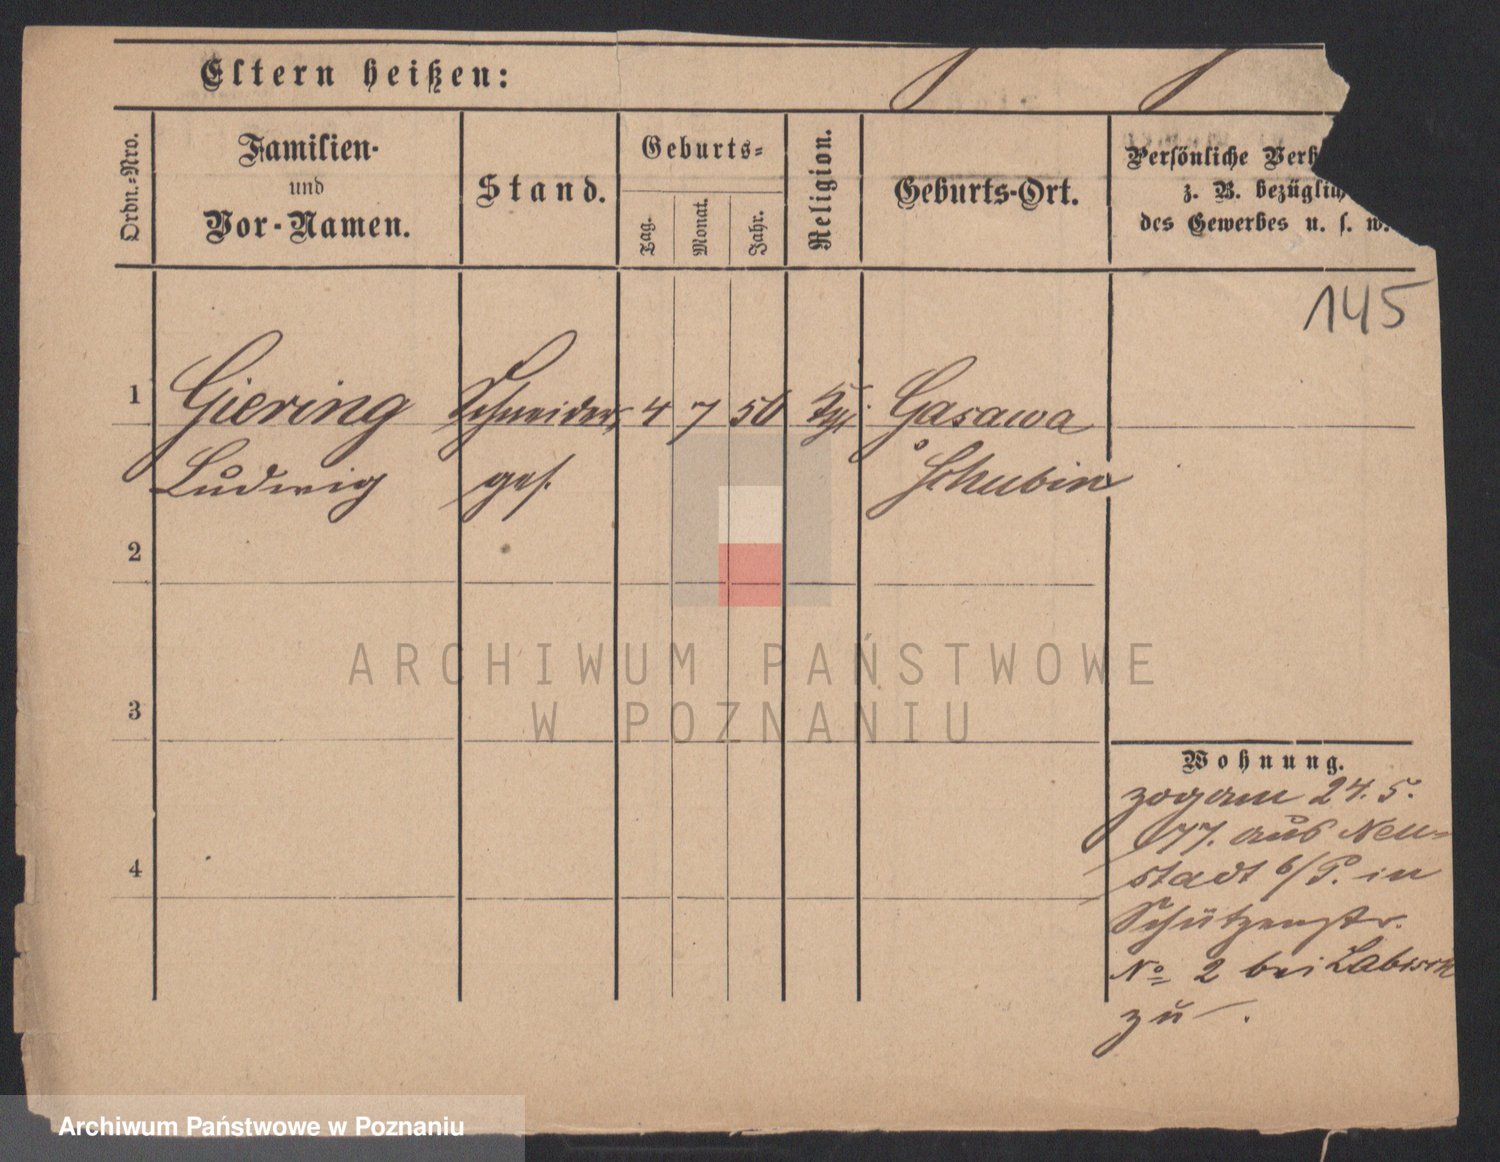 Eltern heißen:
Ordn.-Nro.
Familien-
und
Vor-Namen.
Stand.
Geburts-
Tag.
Monat.
Jahr.
Religion.
Geburts-Ort.
Persönliche Verh
z. B. bezüglich
des Gewerbes u. s. w.
145
1 Giering Schneider 4 7 56 Gasawa
Ludwig ges. Schubin
2
3
4
Wohnung.
zog am 24. 5.
77. aus Neu-
stadt b/P. in
Schützenstr.
No 2 bei Labisch
zu.
ARCHIWUM PAŃSTWOWE
W POZNANIU
Archiwum Państwowe w Poznaniu